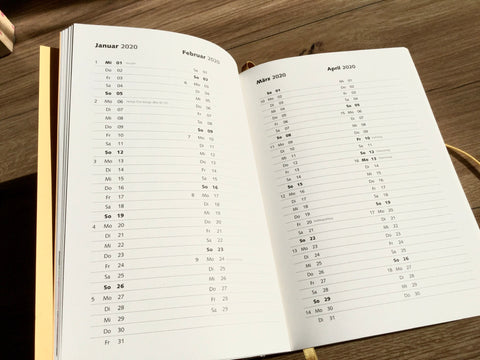 Januar 2020
1 Mi 01 Neujahr
Do 02
Fr 03
Sa 04
So 05
2 Mo 06
Di 07
Mi 08
Do 09
Fr 10
Sa 11
So 12
3 Mo 13
Di 14
Mi 15
Do 16
Fr 17
Sa 18
So 19
4 Mo 20
Di 21
Mi 22
Do 23
Fr 24
Sa 25
So 26
5 Mo 27
Di 28
Mi 29
Do 30
Fr 31
Februar 2020
Sa 01
So 02
6 Mo 03
Di 04
Mi 05
Do 06
Fr 07
Sa 08
So 09
7 Mo 10
Di 11
Mi 12
Do 13
Fr 14
Sa 15
So 16
8 Mo 17
Di 18
Mi 19
Do 20
Fr 21
Sa 22
So 23
9 Mo 24
Di 25
Mi 26
Do 27
Fr 28
Sa 29
März 2020
So 01
10 Mo 02
Di 03
Mi 04
Do 05
Fr 06
Sa 07
So 08
11 Mo 09
Di 10
Mi 11
Do 12
Fr 13
Sa 14
So 15
12 Mo 16
Di 17
Mi 18
Do 19
Fr 20
Sa 21
So 22
13 Mo 23
Di 24
Mi 25
Do 26
Fr 27
Sa 28
So 29
14 Mo 30
Di 31
April 2020
Mi 01
Do 02
Fr 03
Sa 04
So 05
15 Mo 06
Di 07
Mi 08
Do 09
Fr 10
Sa 11
So 12
16 Mo 13
Di 14
Mi 15
Do 16
Fr 17
Sa 18
So 19
17 Mo 20
Di 21
Mi 22
Do 23
Fr 24
Sa 25
So 26
18 Mo 27
Di 28
Mi 29
Do 30